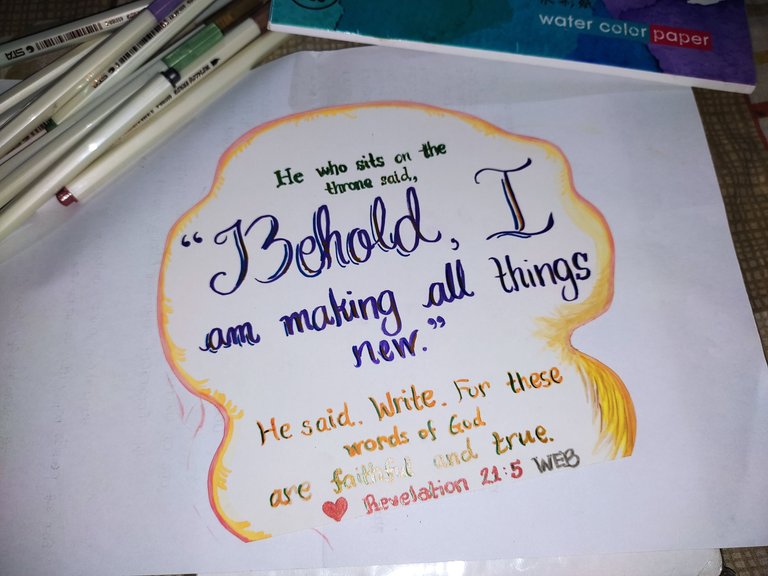 water color paper
He who sits on the
throne said,
“Behold, I
am making all things
new.”
He said. Write. For these
words of God
are faithful and true.
Revelation 21:5 WEB